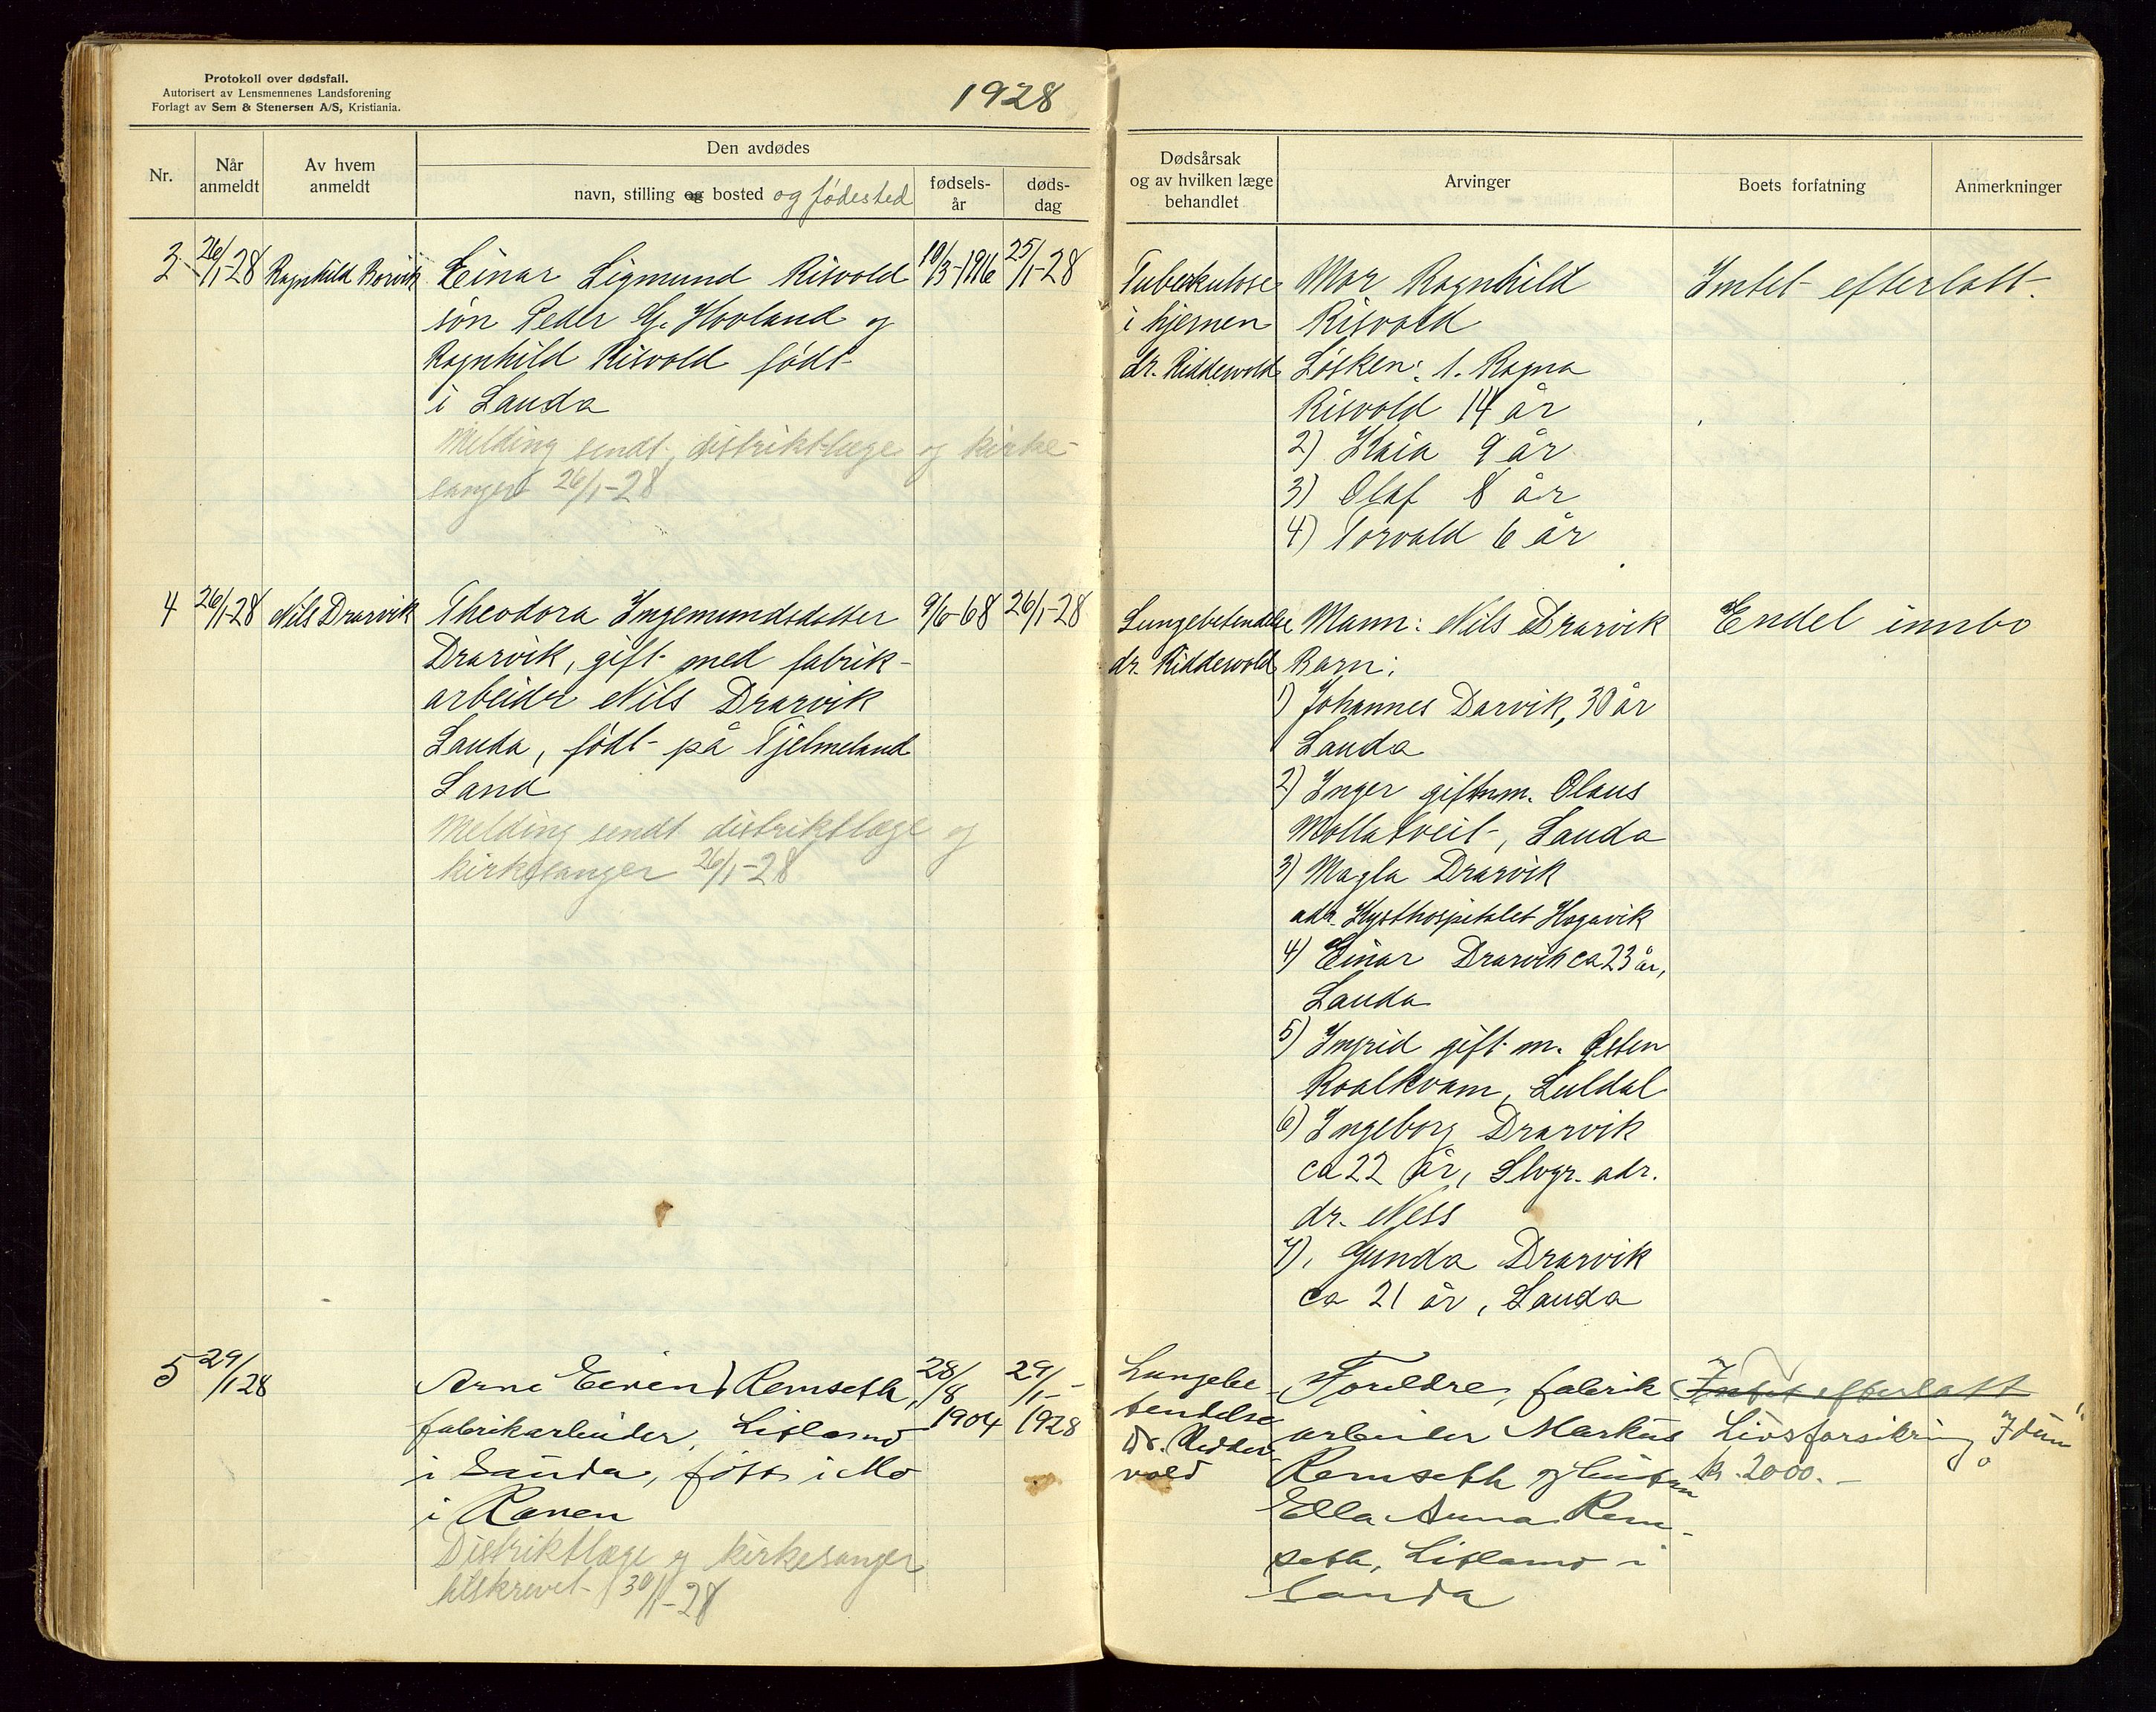 Protokoll over dødsfall.
Autorisert av Lensmennenes Landsforening
Forlagt av Sem & Stenersen A/S, Kristiania.
1928
Nr.
Når
anmeldt
Av hvem
anmeldt
Den avdødes
navn, stilling og bosted og fødested
fødsels-
år
døds-
dag
Dødsårsak
og av hvilken læge
behandlet
Arvinger
Boets forfatning
Anmerkninger
3 26/1-28 Ragnhild
Einar Sigmund Risvold
søn Peder G. Hovland og
Ragnhild Risvold født
i Sauda
Melding sendt distriktlæge og kirke-
sanger 26/1-28
10/3-1916 25/1-28
Tuberkulose
i hjernen
dr. Riddervold
Mor Ragnhild
Risvold
Søsken: 1. Ragna
Risvold 14 år
2) Kaia 9 år
3) Olaf 8 år
4) Torvald 6 år
Intet efterlatt.
4 26/1-28 Nils Drarvik
Theodora Ingemundsdatter
Drarvik, gift med fabrik-
arbeidr Nils Drarvik
Sauda, født på Tjelmeland
Sand
Melding sendt distriktlæge og
kirkesanger 26/1-28
9/6-68 26/1-28
Lungebetendelse
dr. Riddervold
Mann: Nils Drarvik
Barn:
1) Johannes Darvik, 30 år
Sauda
2) Inger gift m. Olaus
Mollatveit, Sauda
3) Magla Drarvik
adr. Kysthospitalet Hagavik
4) Einar Drarvik ca 23 år,
Sauda
5) Ingrid gift m. Østen
Roalkvam, Suldal
6) Ingeborg Drarvik
ca 22 år, Slvgr. adr.
dr. Ness
7), Gunda Drarvik
ca 21 år, Sauda
Endel innbo
5 29/1 28
Arne Eivend Remseth,
fabrikarbeider, Litlamo
i Sauda, født i Mo
i Ranen
Distriktlæge og kirkesanger
tilskrevet 30/1-28
28/8 1904
29/1- 1928
Lungebe-
tendelse
Dr. Ridder-
vold
Foreldre, fabrik
arbeider Markus
Remseth og hustru
Ella Anna Rem-
seth, Litlamo i
Sauda
Intet efterlatt
Livsforsikring "Idun"
kr. 2000.-